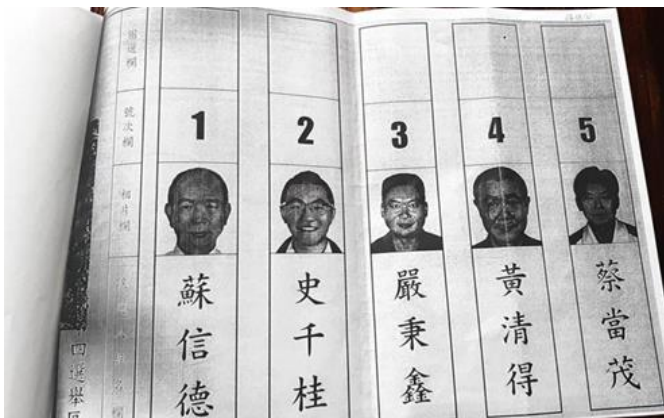 圈選欄
號次欄
相片欄
1
2
3
4
5
蘇信德
史千桂
嚴秉鑫
黃清得
蔡當茂
四選舉區